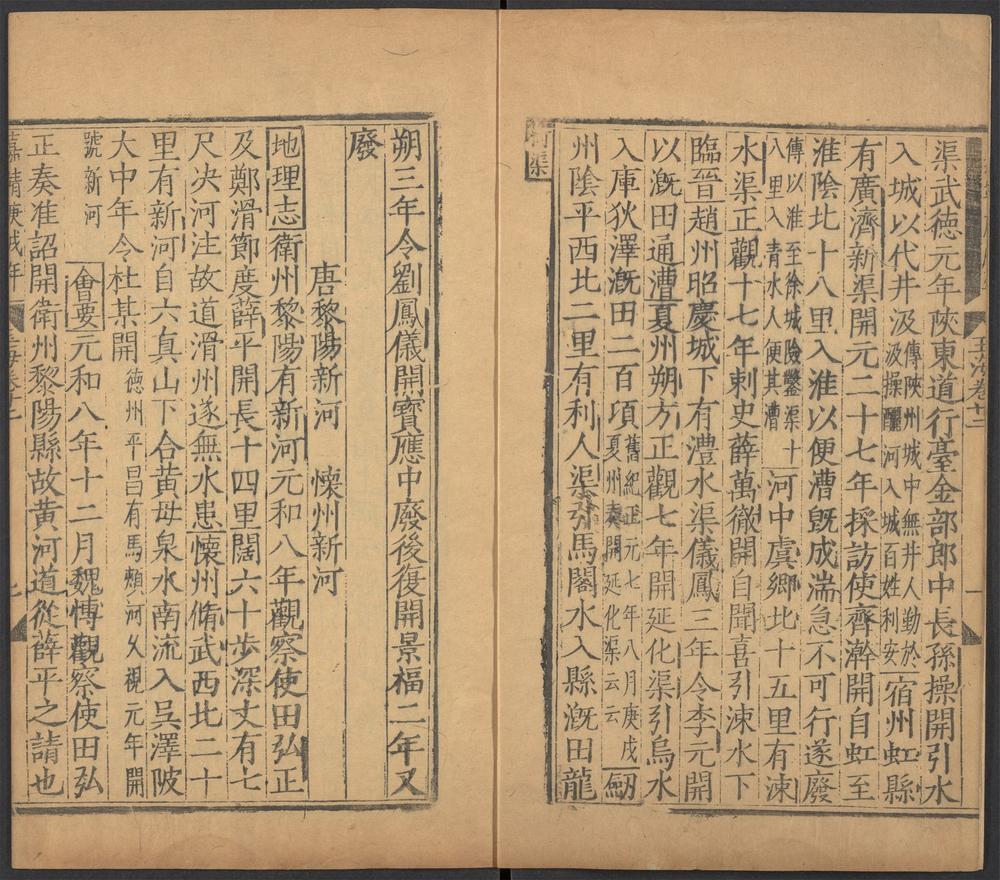 渠武德元年陝東道行臺金部郎中長孫操開引水
入城以代井汲傳陝州城中無井人勤於汲操釃河入城百姓利安宿州虹縣
有廣濟新渠開元二十七年採訪使齊澣開自虹至
淮陰北十八里入淮以便漕旣成湍急不可行遂廢
傳以淮至徐城險鑿渠十八里入青水人便其漕河中虞鄉北十五里有涑
水渠正觀十七年刺史薛萬徹開自聞喜引涑水下
臨晉趙州昭慶城下有澧水渠儀鳳三年令李元開
以漑田通漕夏州朔方正觀七年開延化渠引烏水
入庫狄澤漑田二百項舊紀正元七年八月庚戌夏州奏開延化渠云云劒
州陰平西北二里有利人渠引馬閣水入縣漑田龍
玉海卷十二
渠
朔三年令劉鳳儀開寶應中廢後復開景福二年又
廢
唐黎陽新河 懷州新河
地理志衛州黎陽有新河元和八年觀察使田弘正
及鄭滑節度薛平開長十四里闊六十步深丈有七
尺决河注故道滑州遂無水患懷州脩武西北二十
里有新河自六真山下合黃母泉水南流入吳澤陂
大中年令杜某開德州平昌有馬頰河久視元年開號新河
會要元和八年十二月魏愽觀察使田弘
正奏准詔開衛州黎陽縣故黃河道從薛平之請也
嘉靖庚戌年